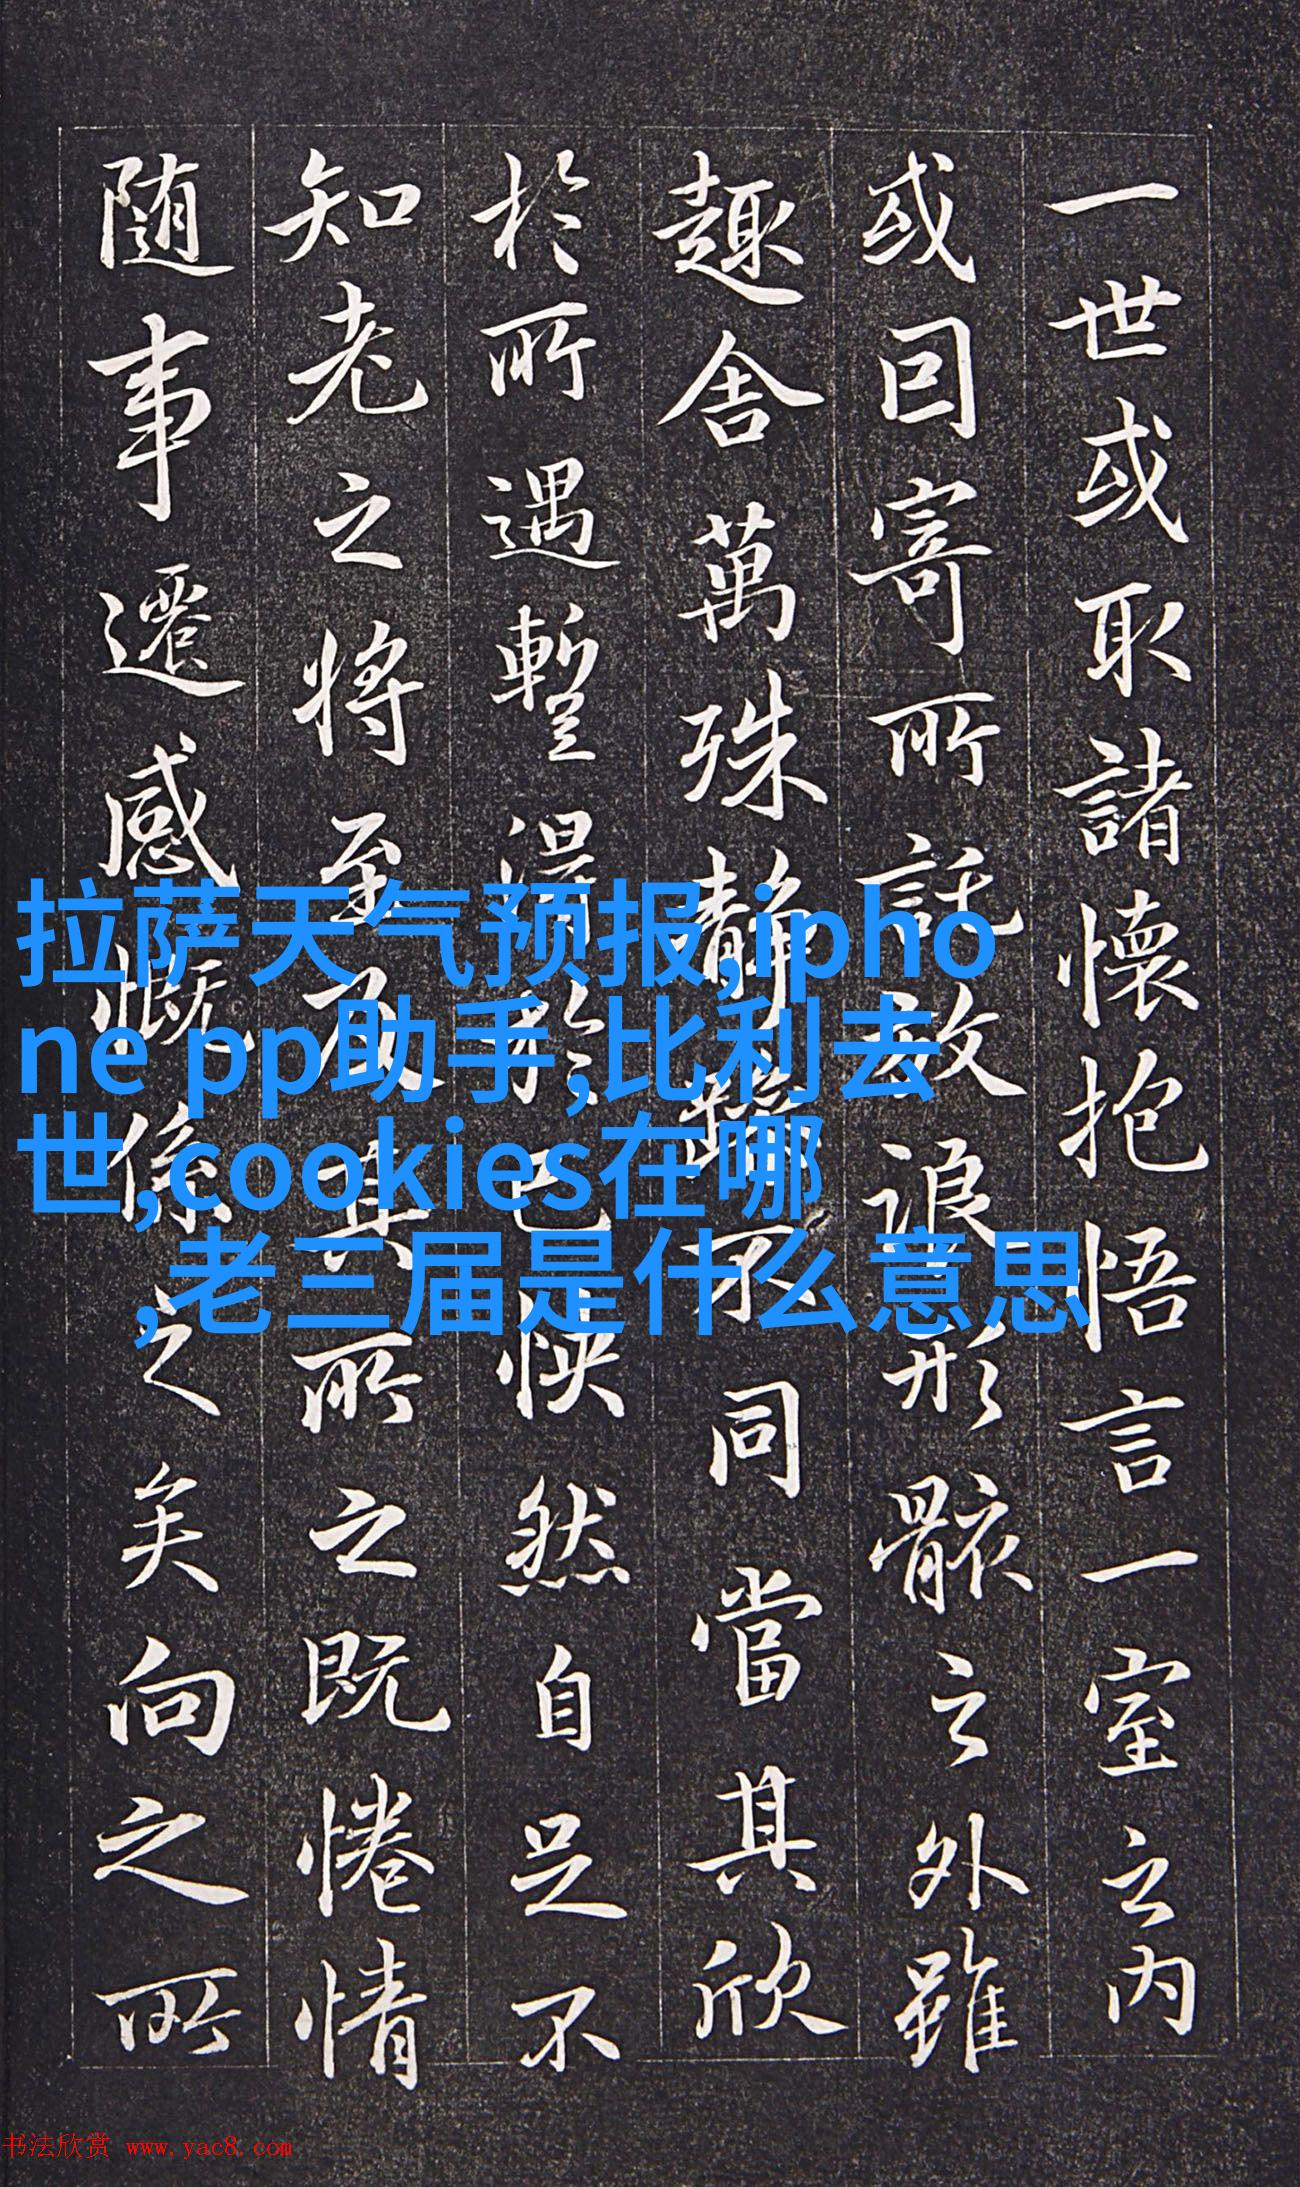 一世或取諸懷抱悟言一室之内
或因寄所託放浪形骸之外雖
趣舍萬殊静躁不同當其欣
於所遇暫得於己快然自足不
知老之将至及其所之既惓情
随事遷感慨係之矣向之所
拉萨天气预报,ipho
ne pp助手,比利去
世,cookies在哪
,老三届是什么意思
书法欣赏 www.yac8.com